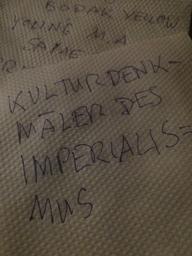 BODAK YELLOW
YOUNG M.A
SAME
R.
KULTURDENK-
MÄLER DES
IMPERIALIS=
MUS